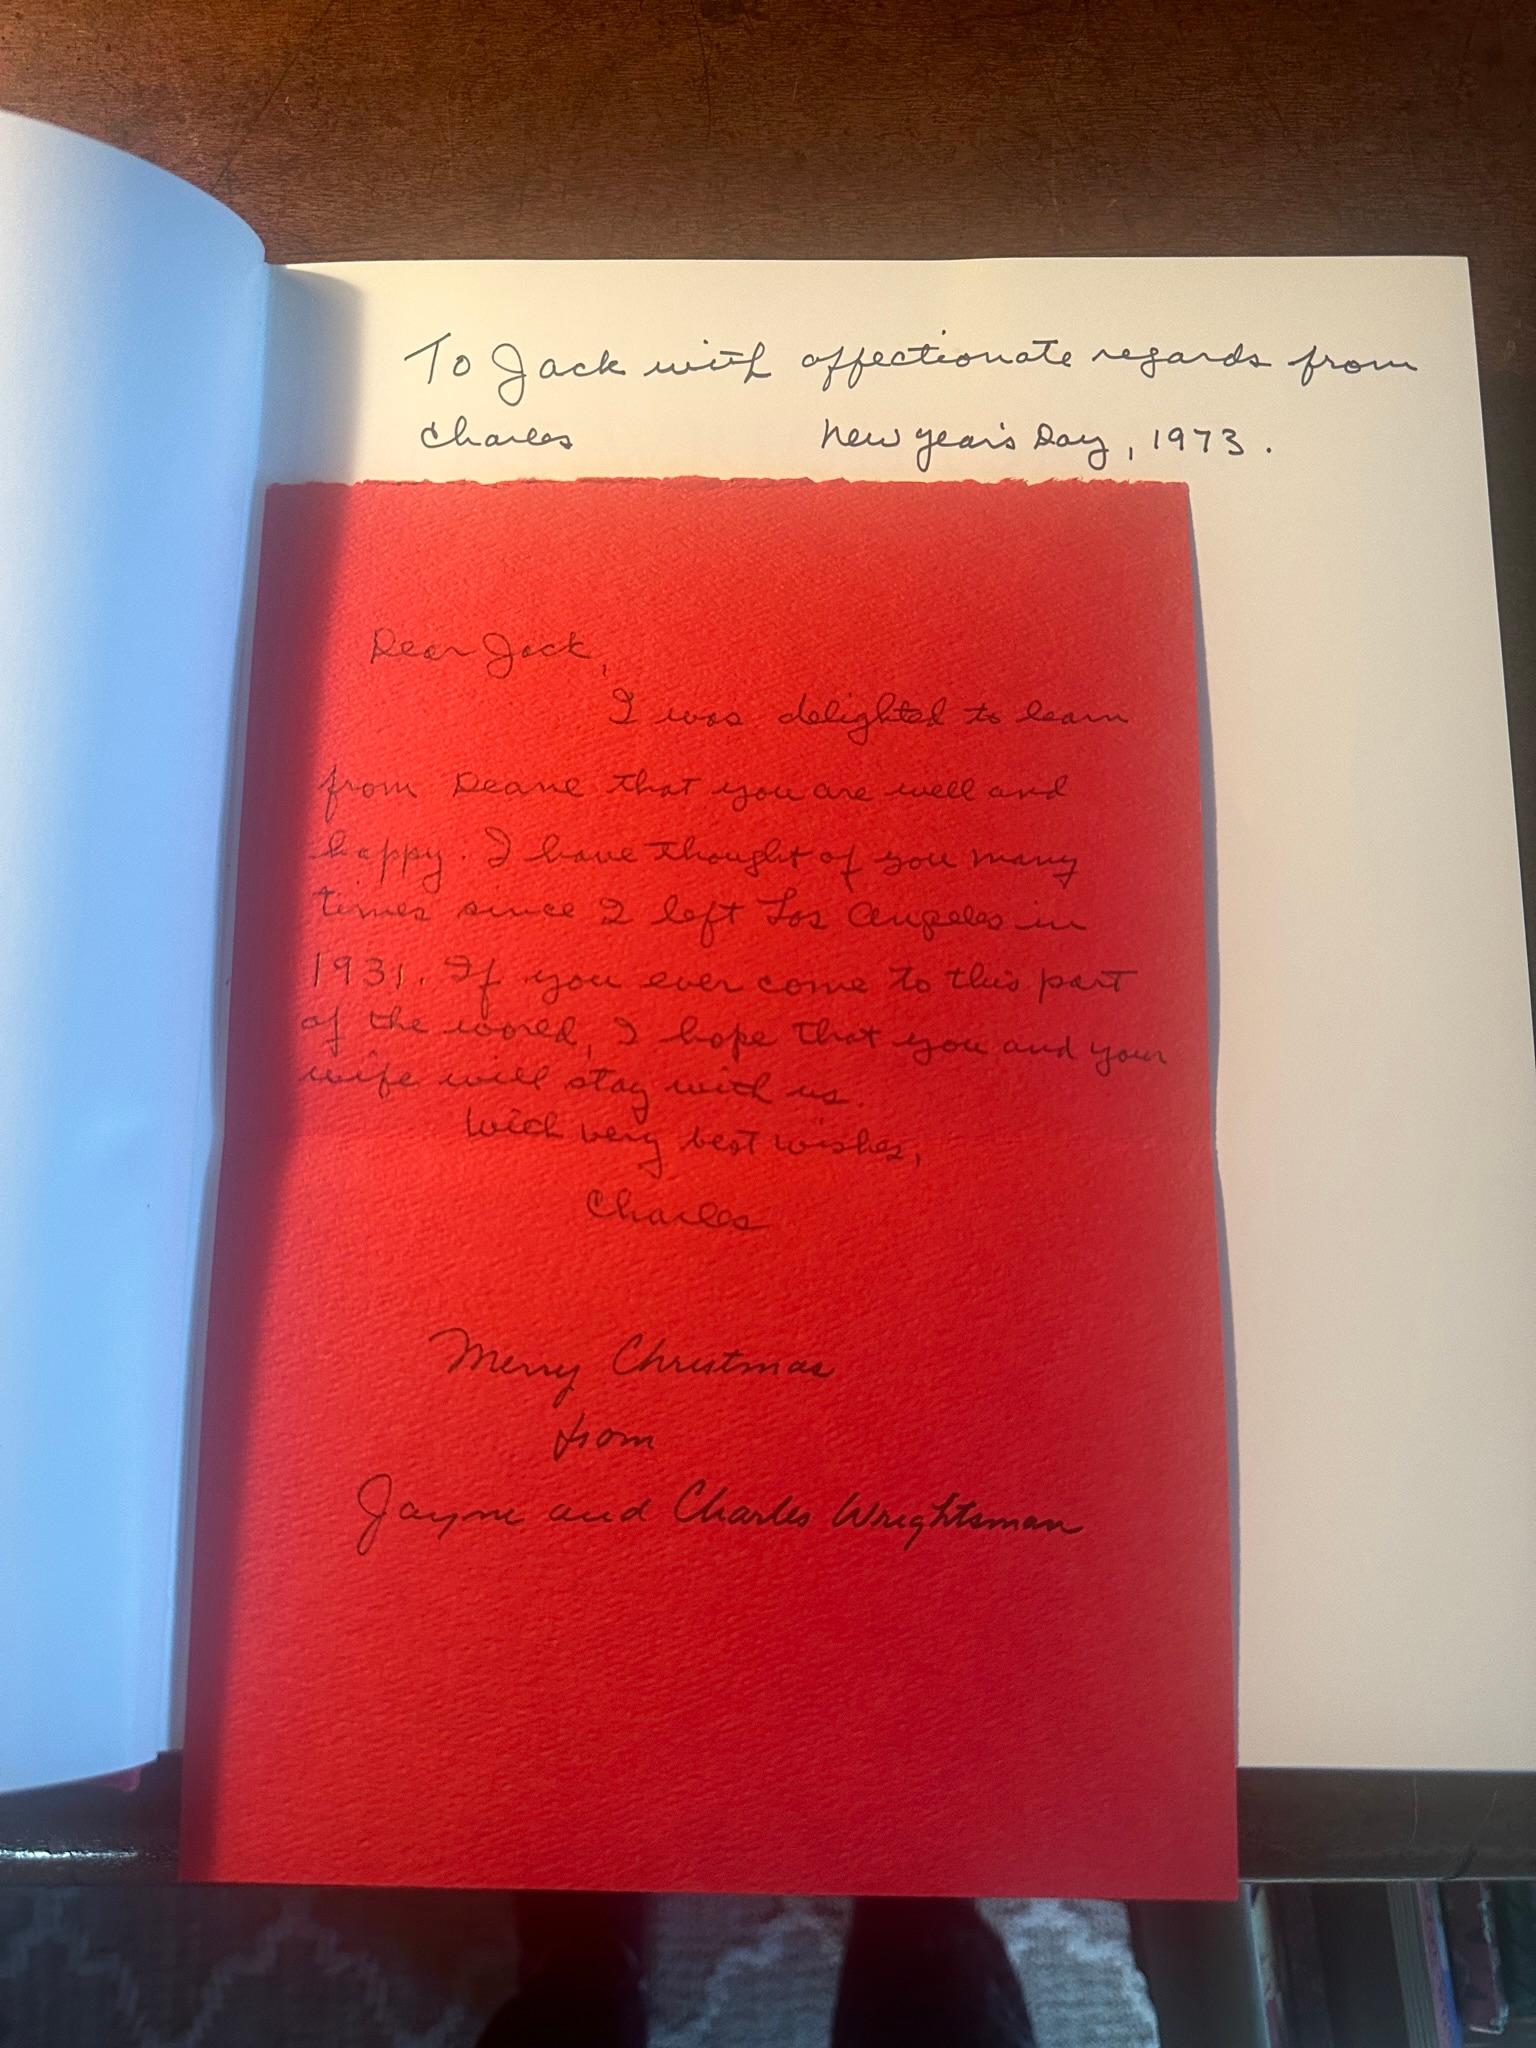 To Jack with affectionate regards from
Charles New Year's Day, 1973.
Dear Jack,
I was delighted to learn
from Deane that you are well and
happy. I have thought of you many
times since I left Los Angeles in
1931. If you ever come to this part
of the world, I hope that you and your
wife will stay with us.
With very best wishes,
Charles
Merry Christmas
from
Jayne and Charles Wrightsman